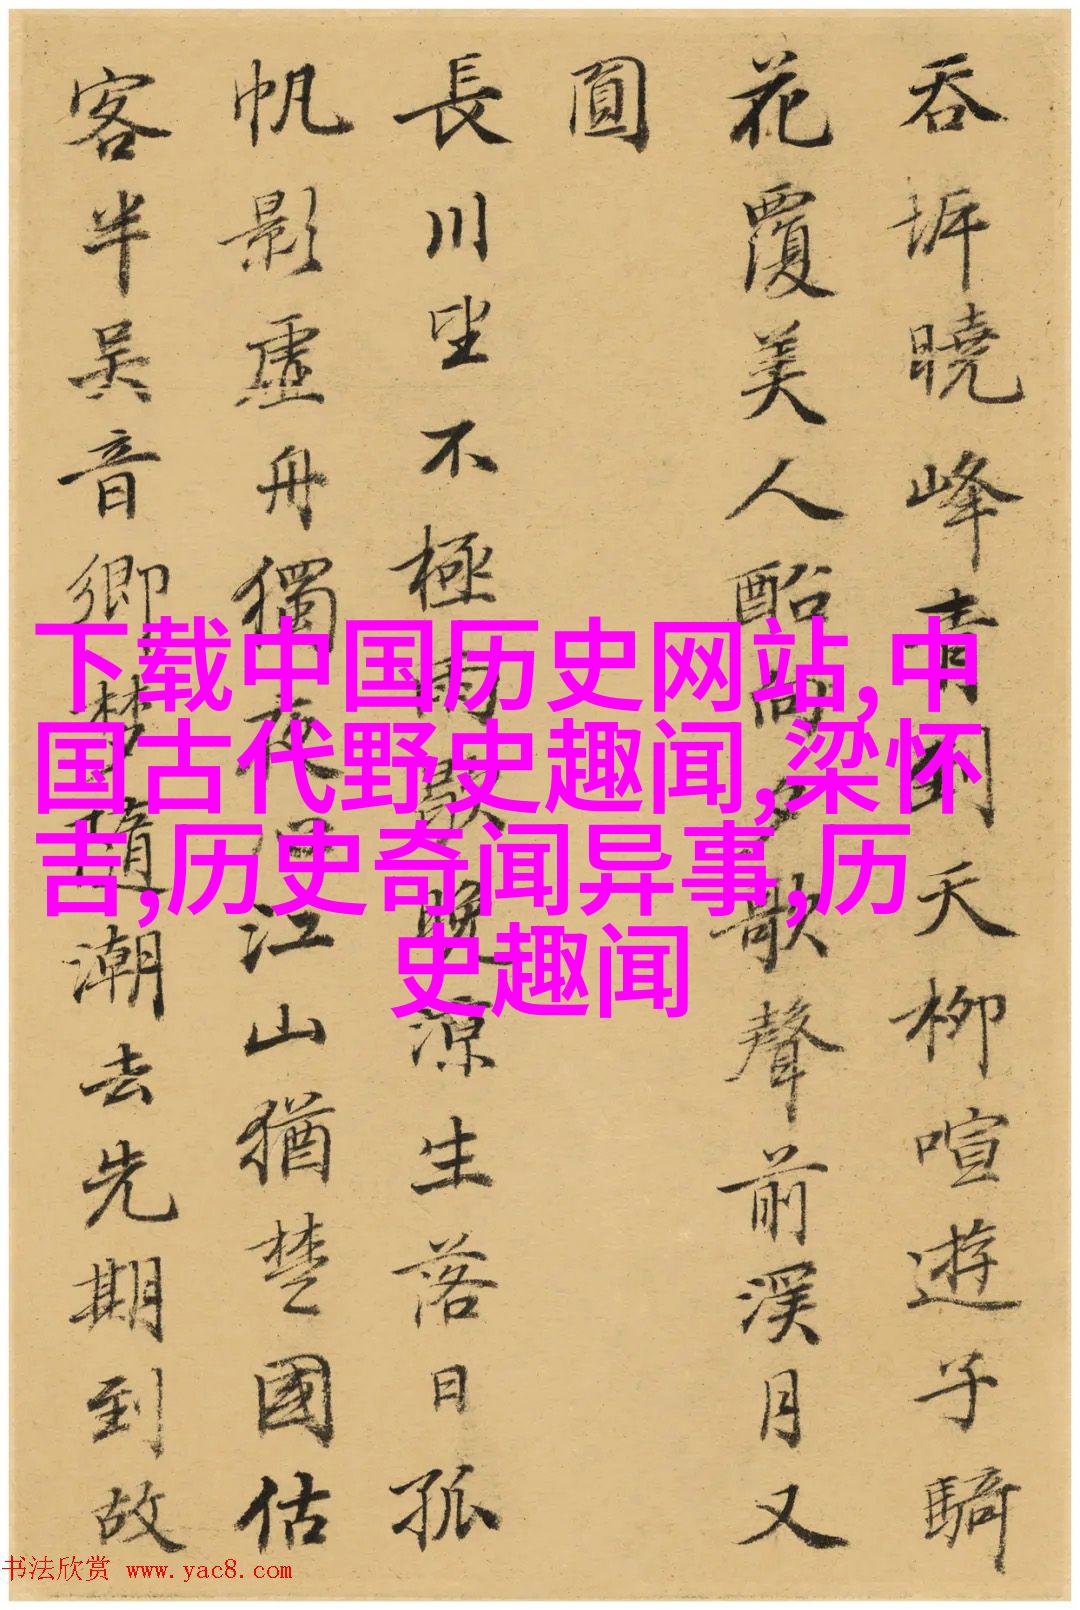 吞圻曉峰青到天柳喧遊子騎
花覆美人酩向夕歌聲前溪月又
圓
長川坐不極雨歇晚涼生落日孤
帆影虛舟獨夜江山猶楚國估
客半吳音鄉夢隨潮去先期到故
下载中国历史网站,中
国古代野史趣闻,梁怀
吉,历史奇闻异事,历
史趣闻
书法欣赏 www.yac8.com